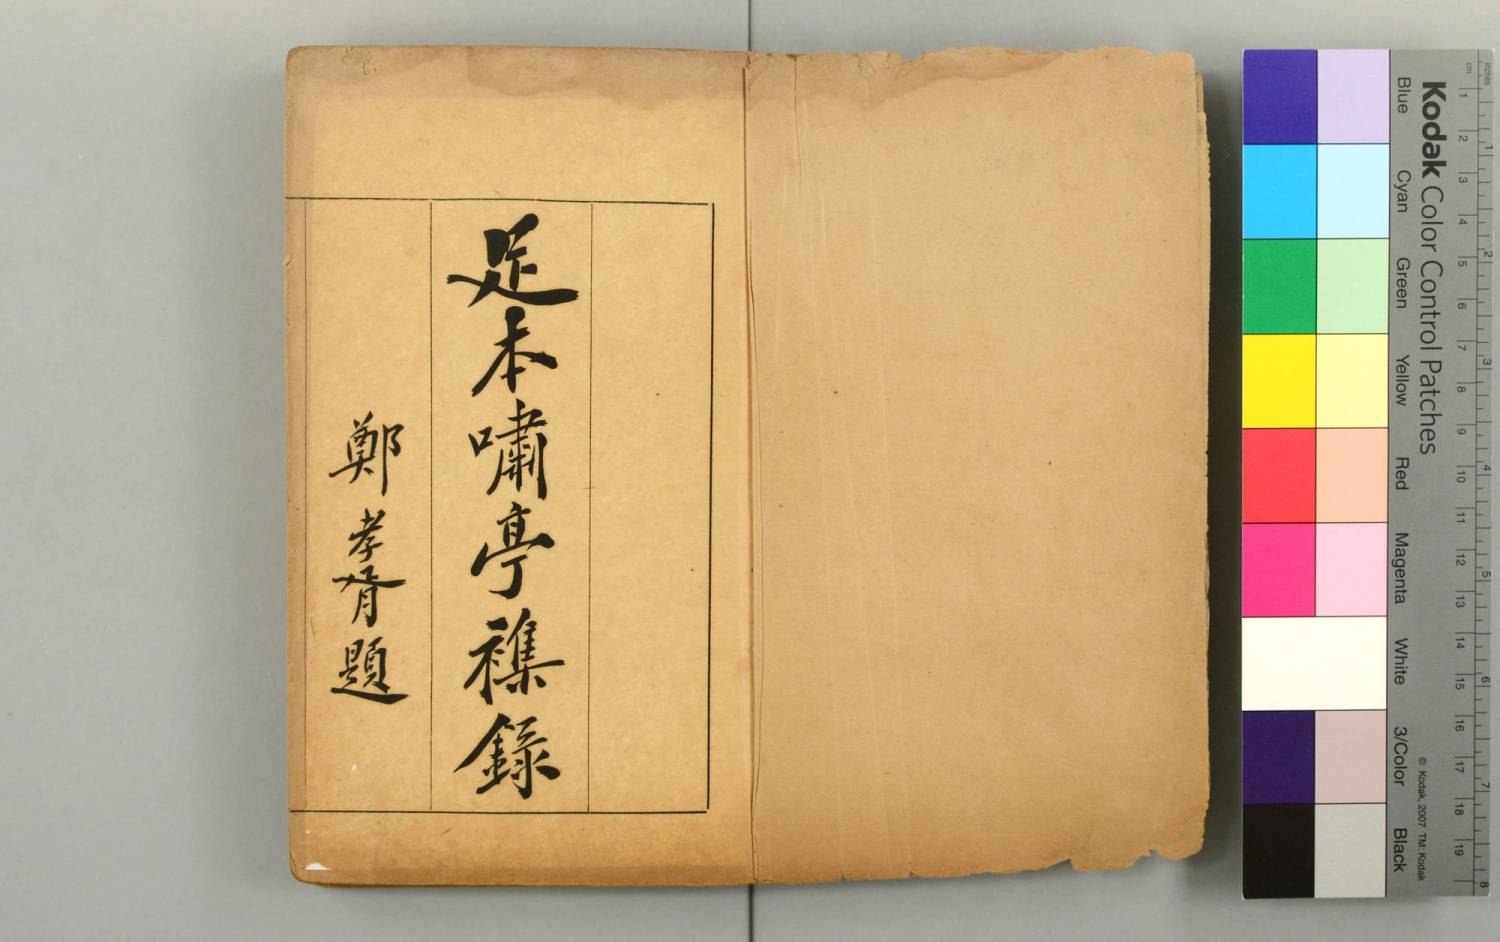 足本嘯亭襍録
鄭孝胥題
Kodak Color Control Patches
Blue
Cyan
Green
Yellow
Red
Magenta
White
3/Color
Black
© Kodak, 2007 TM: Kodak
cm 1 2 3 4 5 6 7 8 9 10 11 12 13 14 15 16 17 18 19
inches 1 2 3 4 5 6 7 8